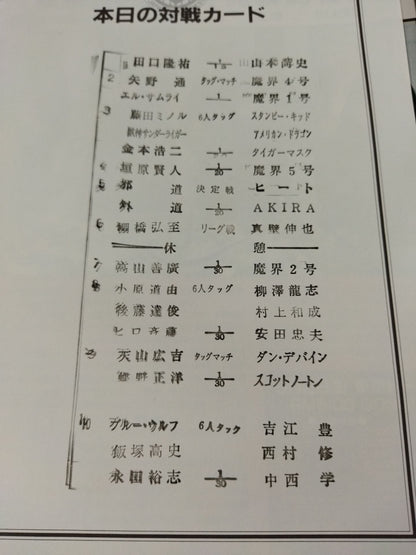 本日の対戦カード
田口隆祐 1/15 山本尚史
2 矢野 通 タッグ・マッチ 魔界4号
エル・サムライ 1 魔界1号
3 藤田ミノル 6人タッグ スタンピー・キッド
獣神サンダーライガー アメリカン・ドラゴン
金本浩二 タイガーマスク
4 垣原賢人 1/20 魔界5号
5 邪 道 決定戦 ヒート
外 道 1/20 AKIRA
6 棚橋弘至 リーグ戦 真壁伸也
休 憩
7 高山善廣 1/30 魔界2号
8 小原道由 6人タッグ 柳澤龍志
後藤達俊 村上和成
ヒロ斉藤 1/30 安田忠夫
9 天山広吉 タッグマッチ ダン・デバイン
蝶野正洋 1/30 スコットノートン
10 ブルー・ウルフ 6人タック 吉江 豊
飯塚高史 西村 修
永田裕志 1/30 中西 学